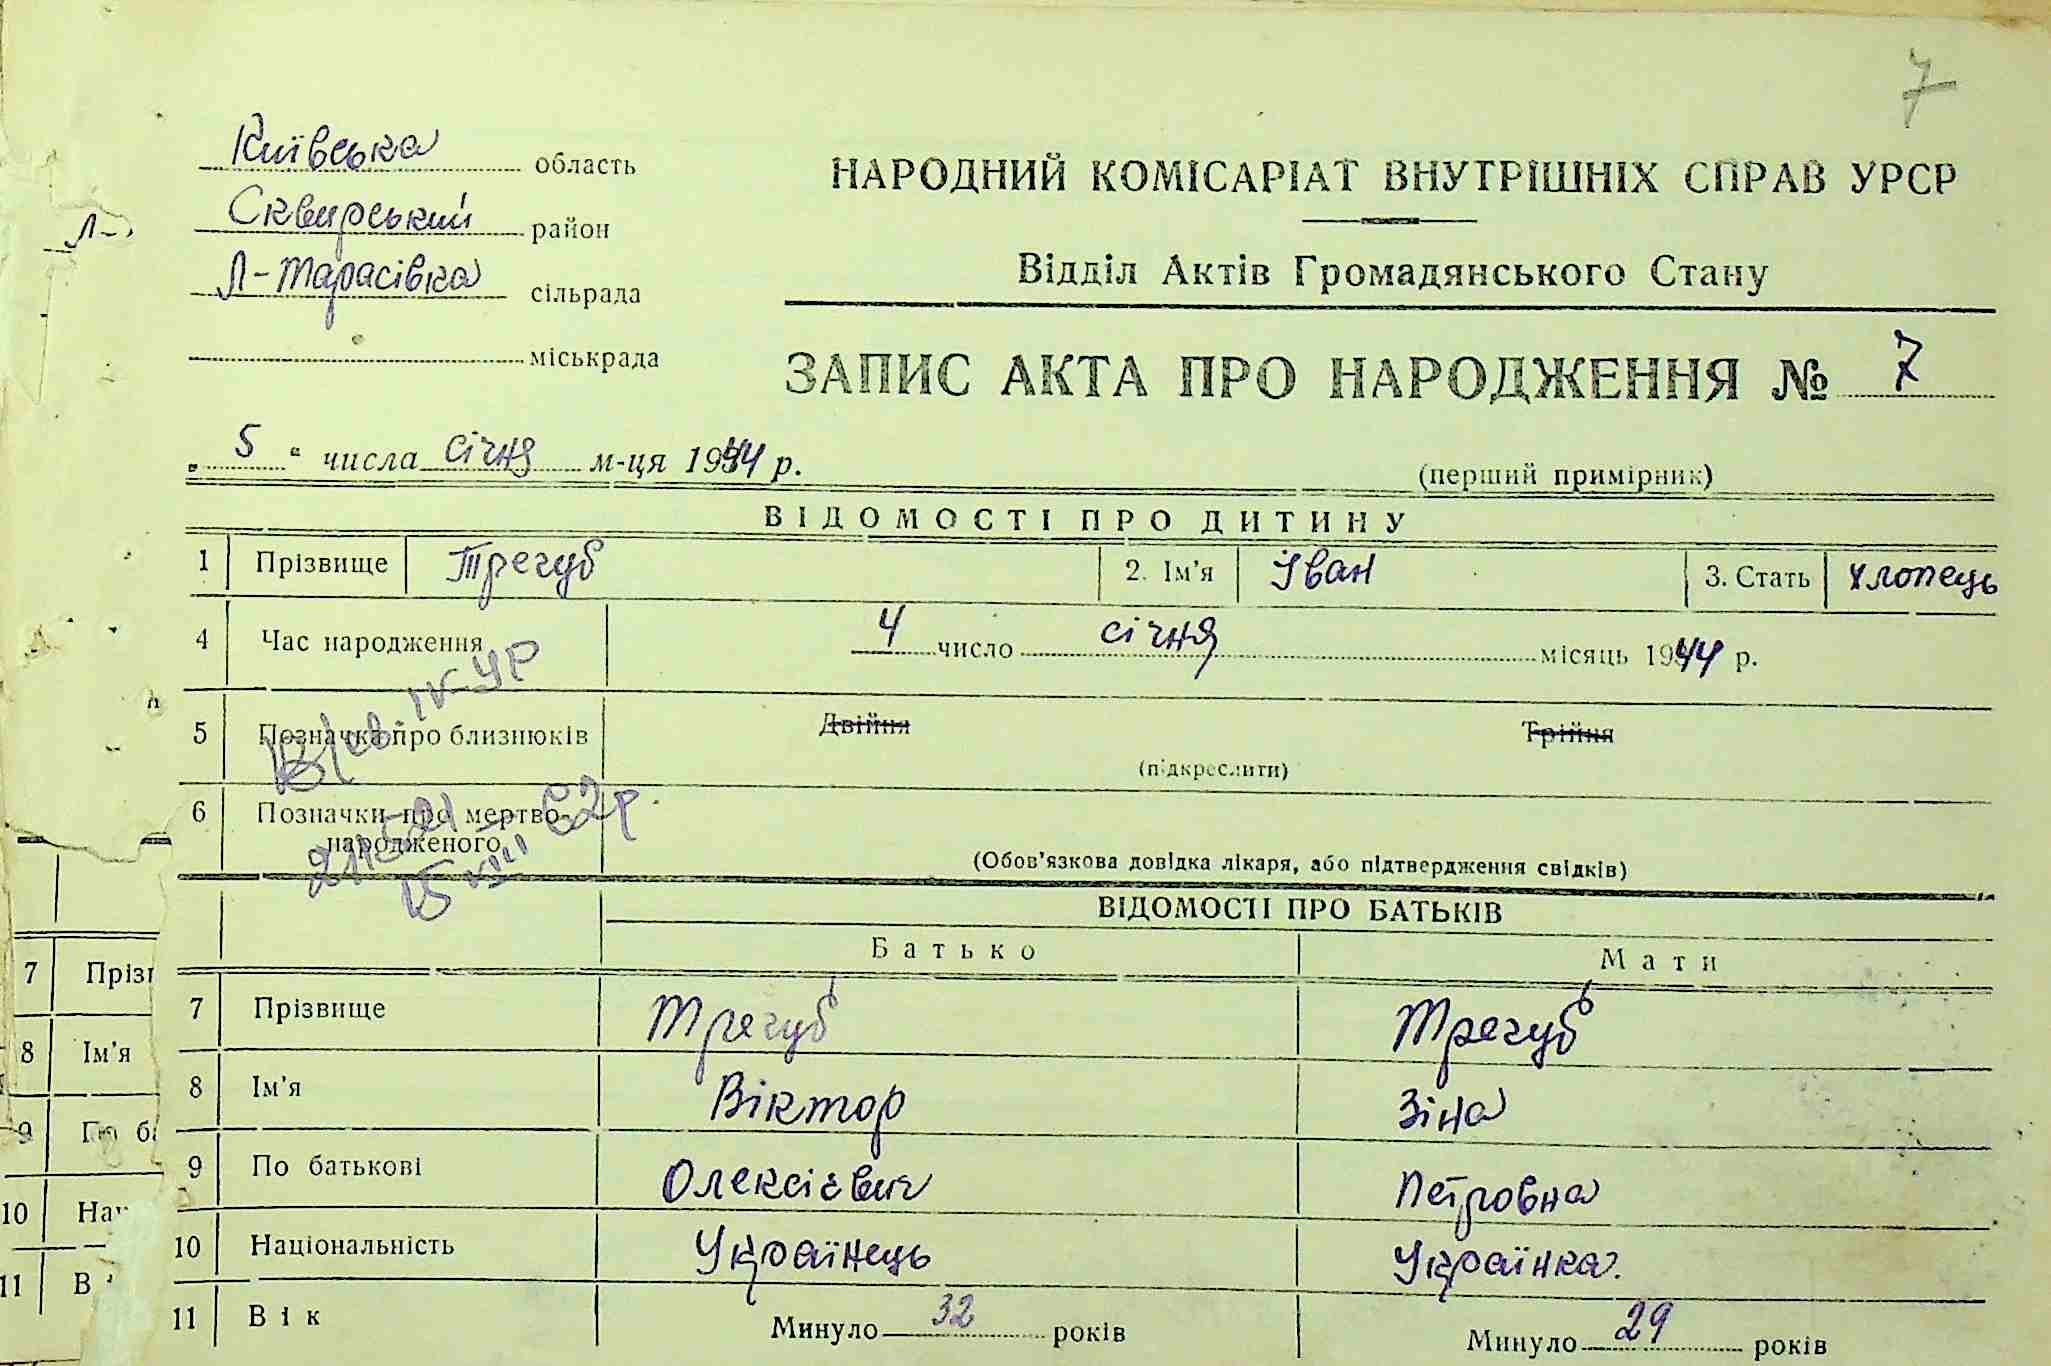 7
Київська область
НАРОДНИЙ КОМІСАРІАТ ВНУТРІШНІХ СПРАВ УРСР
Сквирський район
Відділ Актів Громадянського Стану
Л-
Л-Тарасівка сільрада
міськрада
ЗАПИС АКТА ПРО НАРОДЖЕННЯ № 7
„ 5 “ числа січня м-ця 1944 р.
(перший примірник)
ВІДОМОСТІ ПРО ДИТИНУ
1 Прізвище Трегуб 2. Ім'я Іван 3. Стать хлопець
4 Час народження 4 число січня місяць 1944 р.
5 Позначка про близнюків Двійня Трійня
(підкреслити)
6 Позначки про мертво-
народженого
(Обов'язкова довідка лікаря, або підтвердження свідків)
IV-УР
15 VIII 62р.
ВІДОМОСТІ ПРО БАТЬКІВ
Батько Мати
7 Прізвище Трегуб Трегуб
8 Ім'я Віктор Зіна
9 По батькові Олексієвич Петровна
10 Національність Українець Українка.
11 Вік Минуло 32 років Минуло 29 років
7 Прізв
8 Ім'я
9 По ба
10 Нац
11 В